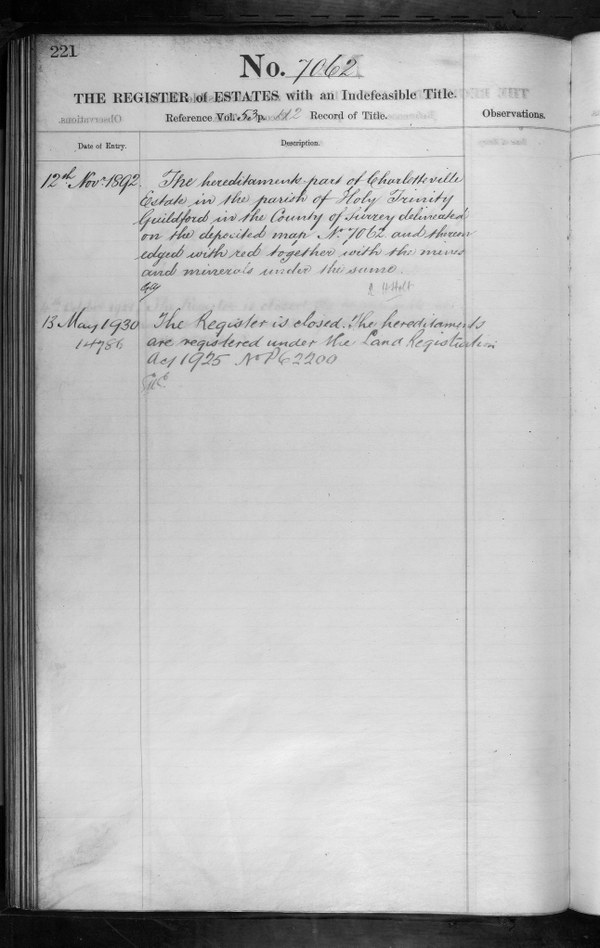 221
No. 7062
THE REGISTER of ESTATES with an Indefeasible Title.
Reference Vol. 53 p. 2 Record of Title.
Observations.
Date of Entry.
Description.
12th Novr 1892
The hereditaments part of Charlotteville
Estate in the parish of Holy Trinity
Guildford in the County of Surrey delineated
on the deposited map No. 7062 and thereon
edged with red together with the mines
and minerals under the same.
13 May 1930
14786
The Register is closed. The hereditaments
are registered under the Land Registration
Act 1925 No P62200